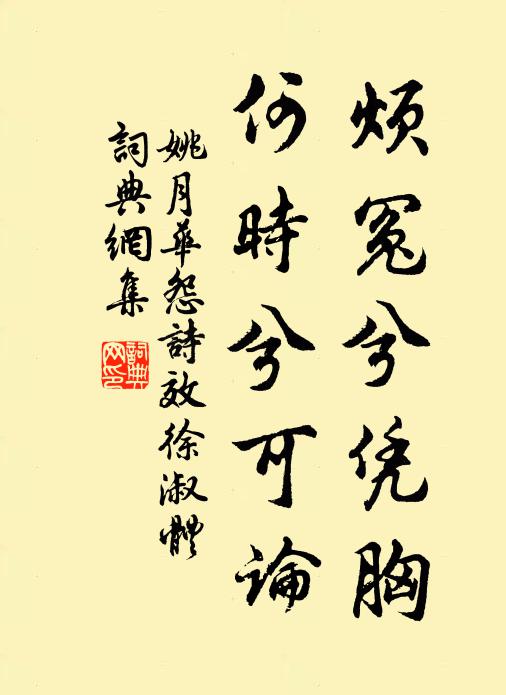 煩冤兮凭胸
何時兮可論
姚月華怨詩效徐淑體
詞典網集
詞典網印